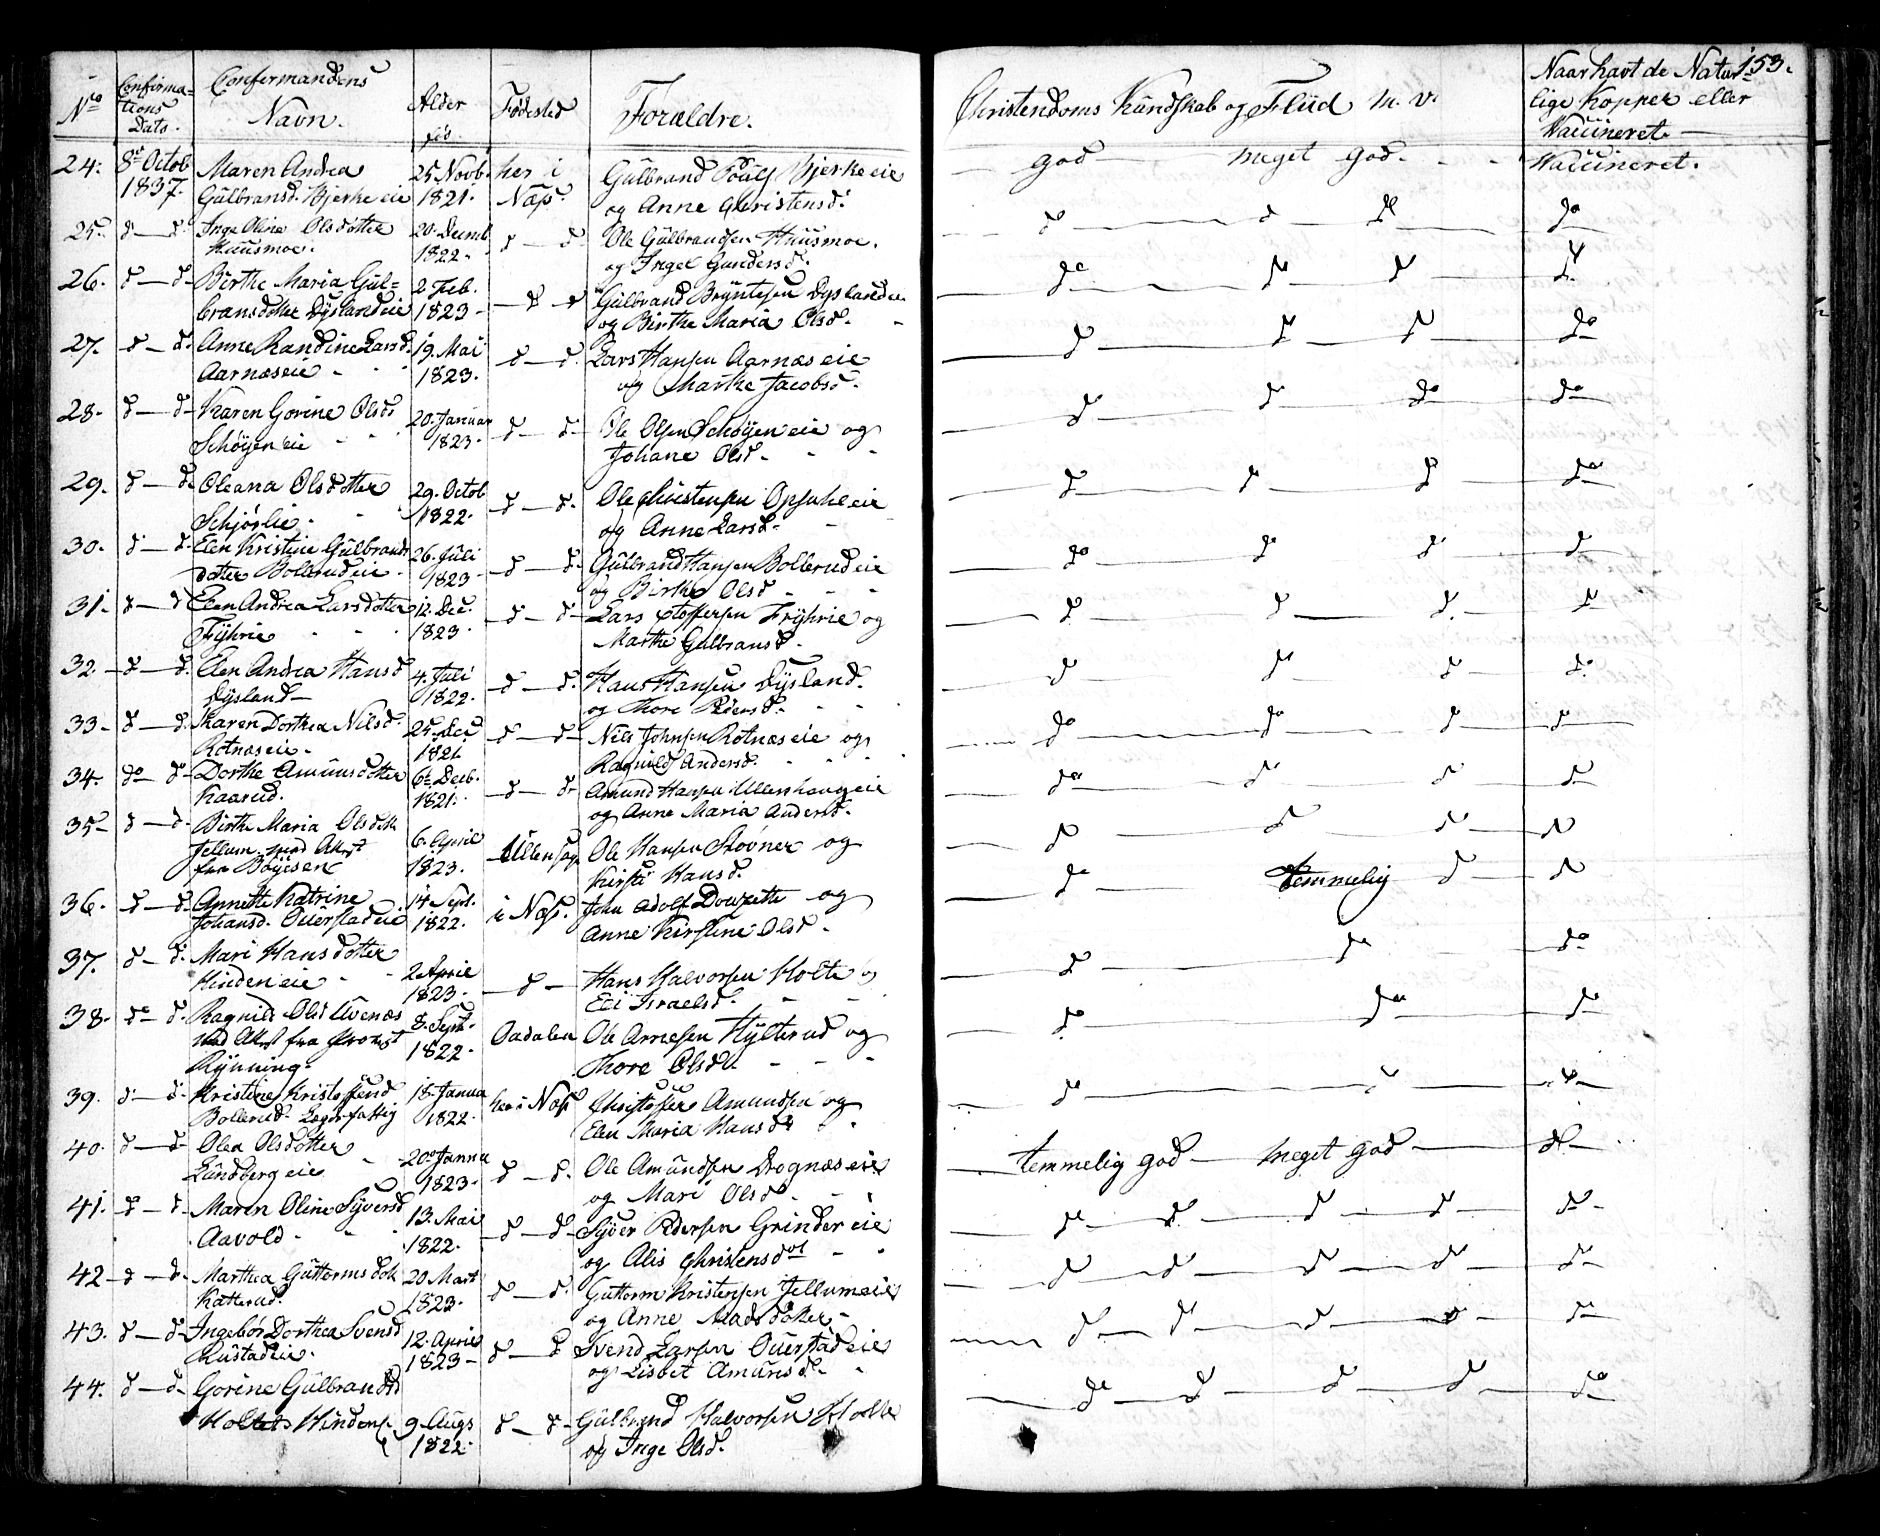 No
Confirma-
tions
Dato.
Confermandens
Navn.
Alder
Fødested
Forældre.
Christendoms Kundskab og Fliid m. v.
Naar havt de Natur-
lige Kopper eller
Vaccineret.
153.
24. 8de Octob 1837. Maren Andrea 25 Novb. her i Gulbrand Bjerkeeie god meget god Vaccineret.
Gulbransd. Bjerkeeie 1821. Næs. og Anne Christensd.
25. d — d. Inge Oline Olsdotter 20 Decemb d — d Ole Gulbrandsen Huusmoe. d d d do
Huusmoe. 1822. og Ingel Gundersd.
26. d — d. Birthe Maria Gul- 2 Feb. d d Gulbrand Bryntesen Dyslandeie do d d d
bransdotter Dyslandeie 1823 og Birthe Maria Olsd.
27. d — d. Anne Randine Larsd. 19. Mai d — d. Lars Hansen Aarnæseie d d d do
Aarnæseie 1823. og Marthe Jacobsd.
28. d — d. Karen Gorine Olsd 20. Januar d — d. Ole Olsen Schøyeneie og d d do do
Schøyeneie 1823. Johane Olsd.
29. d — d. Oleana Olsdotter 29. Octob d — d. Ole Christensen Opsahleie d d d do
Schjørlie. 1822. og Anne Larsd.
30. d — d. Elen Kristine Gulbrands 26. Juli d — d. Gulbrand Hansen Bollerudeie do d d d
dotter Bollerudeie 1823 og Birthe Olsd
31. d — d Elen Andrea Larsdotter 12. Dec. d — d Lars Stoffersen Fryhrie og d d d. d
Fryhrie 1823. Marthe Gulbransd.
32. d — d. Elen Andrea Hansd 4. Juli d — d. Hans Hansen Dysland. d d d d.
Dysland 1822. og Thore Pedersd.
33. d — d. Karen Dorthea Nilsd. 25. Dec d — d Nils Johnsen Rotnæseie og do do d d
Rotnæseie. 1821 Ragnild Andersd.
34. do d. Dorthe Amunsdotter 6te Decb. d — d. Amund Hansen Ullershaugeie do d d d
Kaarud. 1821. og Anne Maria Andersd.
35. d — d. Birthe Maria Olsdtt 6. April Ullensager Ole Hansen Støvner og d d d d
Jellum. med Attest 1823. Kirsti Hansd.
fra Boyesen
36. d — d. Annette Katrine 14 Sept. i Næs. John Adolf og d temmelig d d
Johansd. Ouerstadeie 1822. Anne Kirstine Olsd.
37. d — d. Mari Hansdotter 2 April d Hans Halvorsen Holte og d do do
Hindeneie 1823. Eli Israelsd.
38. do d. Ragnild Olsd Uvenæs 8. Sept. Oadalen Ole Arnesen Hylterud og do do do
med Attest fra Provst 1822. Thore Olsd.
Rynning.
39. d. d. Kristine Kristoffersd 18. Janua her i Næs Christoffer Amundsen og d d d
Bollerud. Lægdsfattig 1822. Elen Maria Hansdt
40. d — d. Olea Olsdotter 20de Janua d — d. Ole Amundsen Drognæseie temmelig god meget god d
Lundbergeie 1823. og Mari Olsd
41. d — d. Maren Oline Syversd 13. Mai d — d Syver Pedersen Grindereie do d d d d
Aavold 1822. og Alis Christensdot
42 d — d. Marthea Guttormsdott 20 Mart d — d. Guttorm Kristensen Jellumeie d d d d d
Katterud. 1823. og Anne Madsdotter
43. d — d. Ingebør Dorthea Svensd 12. April d — d Svend Larsen Ouerstadeie d d d d d
Rustadeie. 1823 og Lisbet Amunsd.
44. d — d. Gorine Gulbrandsd 9. Augs d — d Gulbrand Halvorsen Holte do d d d do
Holteds Hinden 1822. og Inge Olsd.